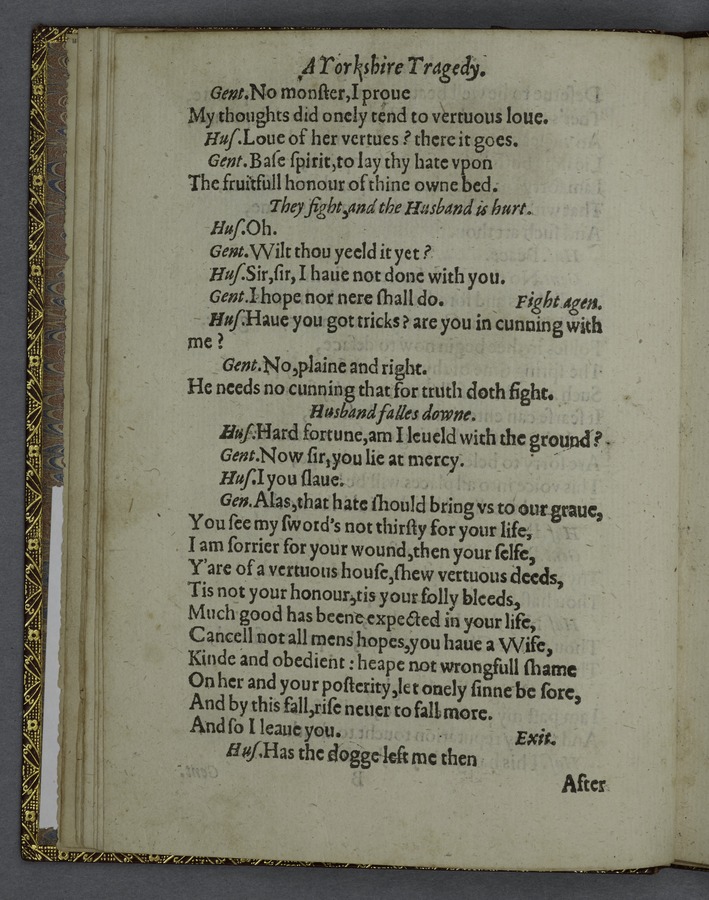 A Yorkshire Tragedy.
Gent.No monſter,I proue
My thoughts did onely tend to vertuous loue.
Huſ.Loue of her vertues ? there it goes.
Gent.Baſe ſpirit,to lay thy hate vpon
The fruitfull honour of thine owne bed.
They fight,and the Husband is hurt.
Huſ.Oh.
Gent.Wilt thou yeeld it yet ?
Huſ.Sir,ſir, I haue not done with you.
Gent.I hope nor nere ſhall do. Fight agen.
Huſ.Haue you got tricks ? are you in cunning with
me ?
Gent.No,plaine and right.
He needs no cunning that for truth doth fight.
Husband falles downe.
Huſ.Hard fortune,am I leueld with the ground ?
Gent.Now ſir,you lie at mercy.
Huſ.I you ſlaue.
Gen.Alas,that hate ſhould bring vs to our graue,
You ſee my ſword's not thirſty for your life,
I am ſorrier for your wound,then your ſelfe,
Y'are of a vertuous houſe,ſhew vertuous deeds,
Tis not your honour,tis your folly bleeds,
Much good has beene expected in your life,
Cancell not all mens hopes,you haue a Wife,
Kinde and obedient : heape not wrongfull ſhame
On her and your poſterity,let onely ſinne be ſore,
And by this fall,riſe neuer to fall more.
And ſo I leaue you. Exit.
Huſ.Has the dogge left me then
After